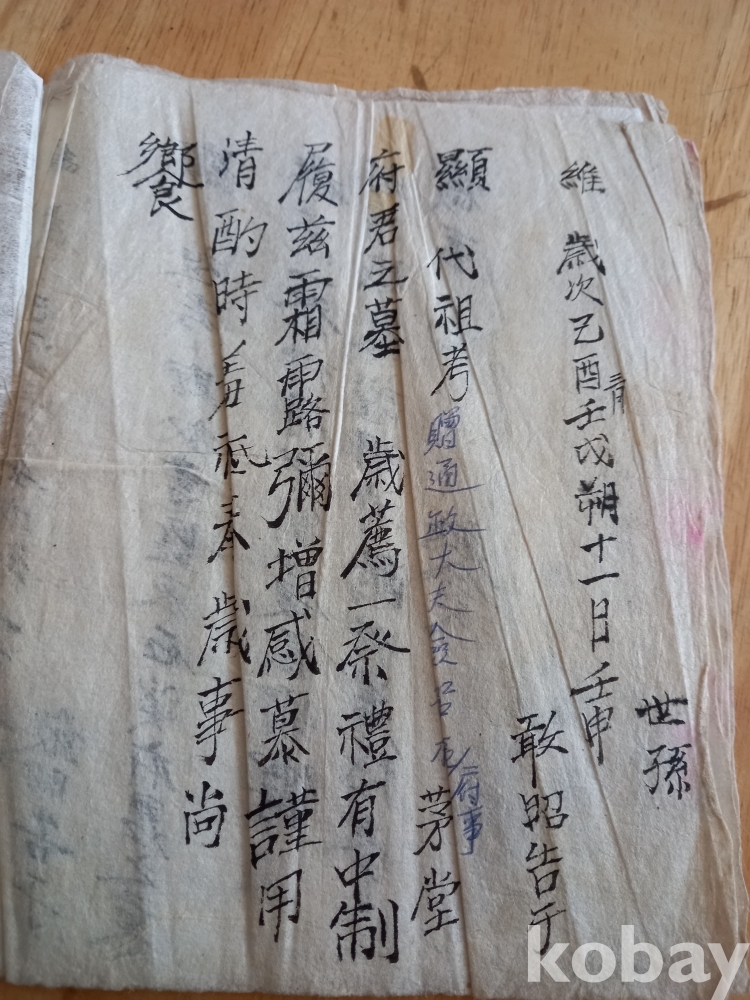 維
歲次己酉三月壬戌朔十一日壬申
世孫
敢昭告于
顯 代祖考贈通政大夫僉 府事茅堂
府君之墓 歲薦一祭禮有中制
履玆霜露彌增感慕謹用
清酌時羞祗奉歲事尚
饗
kobay